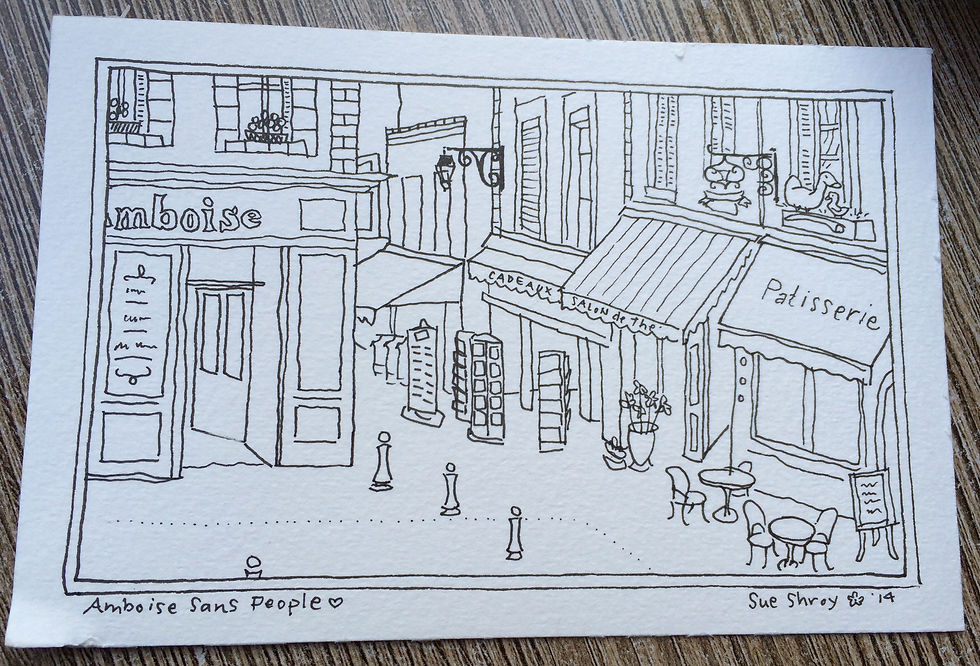 Amboise
CADEAUX
SALON de thé
Patisserie
Amboise Sans People
Sue Shroy '14